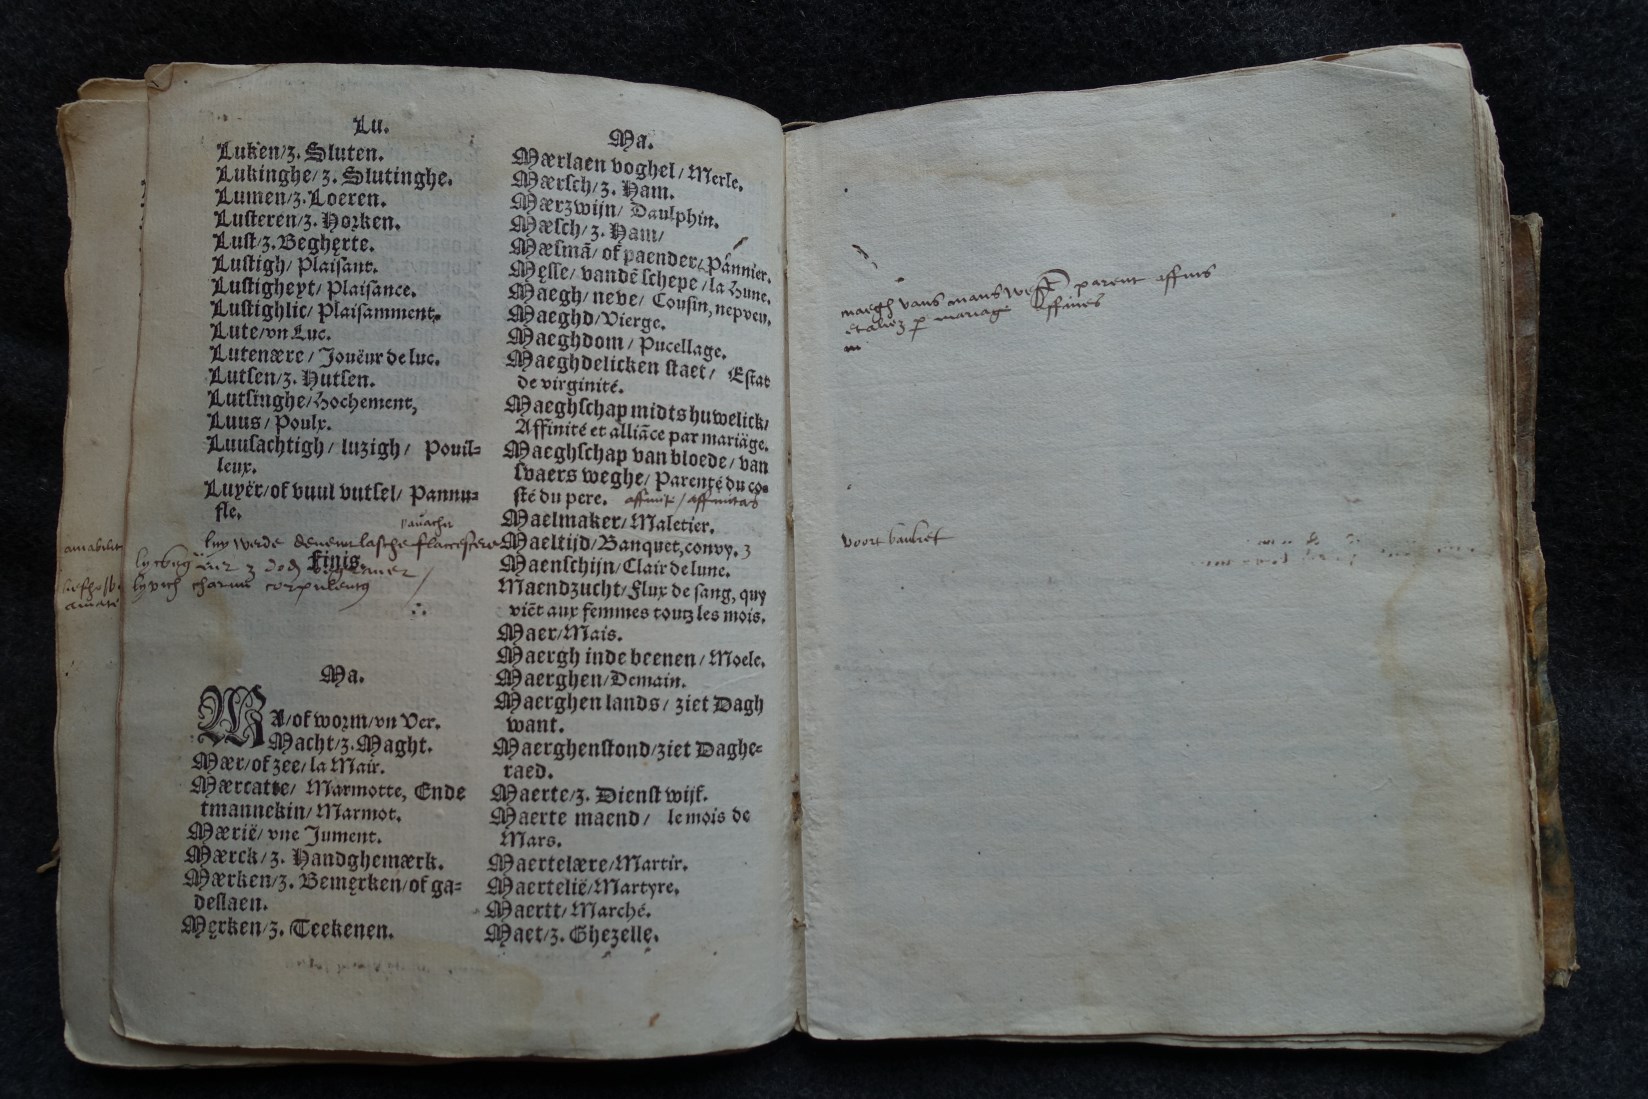 Lu.
Luken/z. Sluten.
Lukinghe/z. Slutinghe.
Lumen/z. Loeren.
Lusteren/z. Horken.
Lust/z. Begherte.
Lustigh/ Plaisant.
Lustigheyt/ Plaisance.
Lustighlic/ Plaisamment.
Lute/vn Luc.
Lutenære/ Joueur de luc.
Lutsen/z. Hutsen.
Lutsinghe/Hochement,
Luus/ Poulx.
Luusachtigh/ luzigh/ Pouil-
leux.
Luyër/of vuul vutsel/ Pannu-
fle.
Finis.
Ma.
MA/of worm/vn Ver.
Macht/z. Maght.
Mær/of zee/ la Mair.
Mærcatte/ Marmotte, Ende
tmannekin/ Marmot.
Mærië/ vne Jument.
Mærck/z. Handghemærk.
Mærken/z. Bemęrken/of ga-
deslaen.
Męrken/z. Teekenen.
Ma.
Mærlaen voghel/ Merle.
Mærsch/z. Ham.
Mærzwijn/ Daulphin.
Mæsch/z. Ham/
Mæsmã/ of paender/ Pannier.
Męsse/ vandẽ schepe/ la Hune.
Maegh/ neve/ Cousin, nepveu.
Maeghd/Vierge.
Maeghdom/ Pucellage.
Maeghdelicken staet/ Estat
de virginité.
Maeghschap midts huwelick/
Affinité et alliãce par mariäge.
Maeghschap van bloede/ van
svaers weghe/ Parenté du co-
sté du pere. affinité / affinitas
Maelmaker/ Maletier.
Maeltijd/Banquet, convy. z
Maenschijn/Clair de lune.
Maendzucht/Flux de sang, quy
viẽt aux femmes toutz les mois.
Maer/Mais.
Maergh inde beenen/ Moele.
Maerghen/Demain.
Maerghen lands/ ziet Dagh
want.
Maerghenstond/ziet Daghe-
raed.
Maerte/z. Dienst wijf.
Maerte maend/ le mois de
Mars.
Maertelære/Martir.
Maertelië/Martyre.
Maertt/ Marché.
Maet/z. Ghezelle.
maegh vans mans parent affinis
mariage affines
voort banket